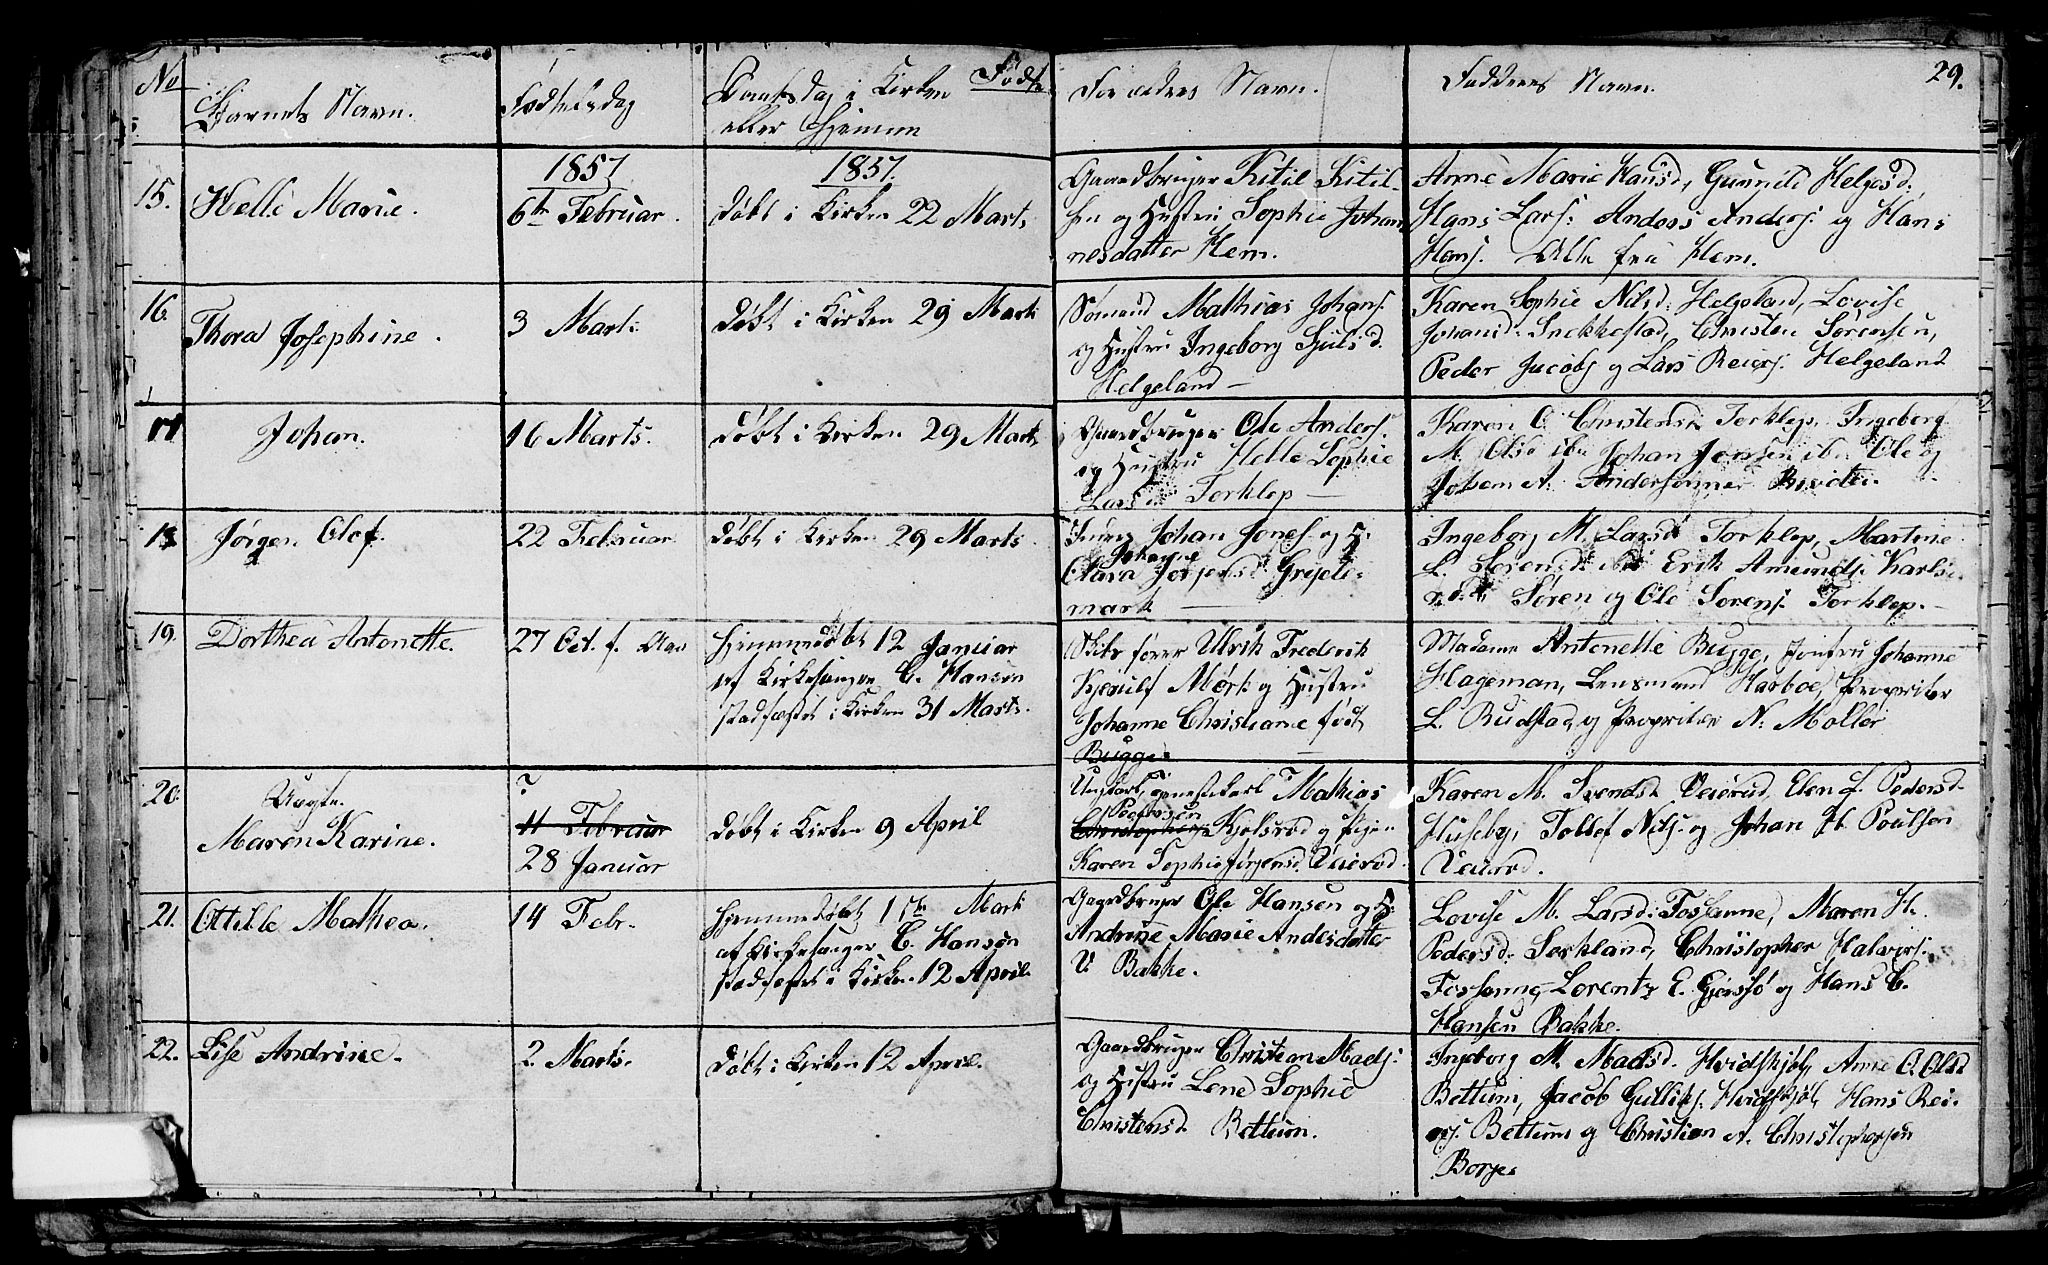 No
Barnets Navn.
Fødselsdag
Daabsdag i Kirken
eller Hjemme
Fødte
Forældres Navn.
Faddernes Navn.
29.
15.
Helle Marie.
1857
6te Februar.
1857.
døbt i Kirken 22 Marts
Gaardbruger Kitil Kitil-
sen og Hustru Sophie Johan
nesdatter Hem.
Anne Marie Hansd, Gunnild Helgesd:
Hans Lars: Anders Anders: og Hans
Hans: Alle fra Hem.
16.
Thora Josephine.
3 Marts
døbt i Kirken 29 Marts
Sømand Mathias Johans:
og Hustru Ingeborg Sjulsd.
Helgeland —
Karen Sophie Nilsd: Helgeland, Lovise
Johansd: Snekkestad, Christen Sørensen,
Peder Jacobs: og Lars Reiers: Helgeland
17
Johan.
16 Marts.
døbt i Kirken 29 Marts
Gaardbruger Ole Anders:
og Hustru Helle Sophie
Larsd Torklep —
Karen O. Christensd. Torklep, Ingeborg
M. Olsd ibn Johan Jonsen ibn Ole og
A. Andersønner
18
Jørgen Olaf.
22 Februar
døbt i Kirken 29 Marts.
Johan Jons: og H:
Johanne
Clara Jørgensd: Grijele-
mark —
Ingeborg M. Larsd Torklep, Martine
L. Sørensd. ibd Erik Amunds: Karls-
rød, Søren og Ole Sørens: Torklep. —
19.
Dorthea Antonette.
27 Oct. f. Aar
Hjemmedøbt 12 Januar
af Kirkesanger C. Hansen
stadfæstet i Kirken 31 Marts.
Skibsfører Ulrik Frederik
Kjerulf Mørk og Hustru
Johanne Christiane født
Bugge.
Madame Antonette Bugge, Jomfru Johanne
Hageman, Lensmand Harboe, Propritær
L. Rudstad, og Propritær N: Møller
20.
Uægte.
Maren Karine.
?
11 Februar
28 Januar
døbt i Kirken 9 April
Ungkarl, Mathias
Pedersen
Christophers: Kjølsrød og Pigen
Karen Sophie Jørgensd. Veierød.
Karen M. Svendsd. Veierød, Elen L. Pedersd.
Huseby, Tollef Nils: og Johan H. Poulsen
Veierød.
21.
Ottilde Mathea.
14 Febr.
Hjemmedøbt 1ste Marts
af Kirkesanger C. Hansen
stadfæstet i Kirken 12 April
Gaardbruger Ole Hansen og H:
Andrine Marie Andersdatter
V: Bakke.
Lovise M. Larsd: Fossanne, Maren H.
Pedersd: Sørkland, Christopher Halvors:
Fossanne, Lorentz E. Gjersjø og Hans C.
Hansen Bakke.
22.
Lise Andrine.
2. Marts.
døbt i Kirken 12 April.
Gaardbruger Christian Mads:
og Hustru Lene Sophie
Christensd Bettum.
Ingeborg M. Madsd. Hvidskjøl, Anne O. Olsd
Bettum, Jacob Gulliks: Hvidskjøl, Hans Rei-
ers: Bettum og Christian A. Christophersen
Borge